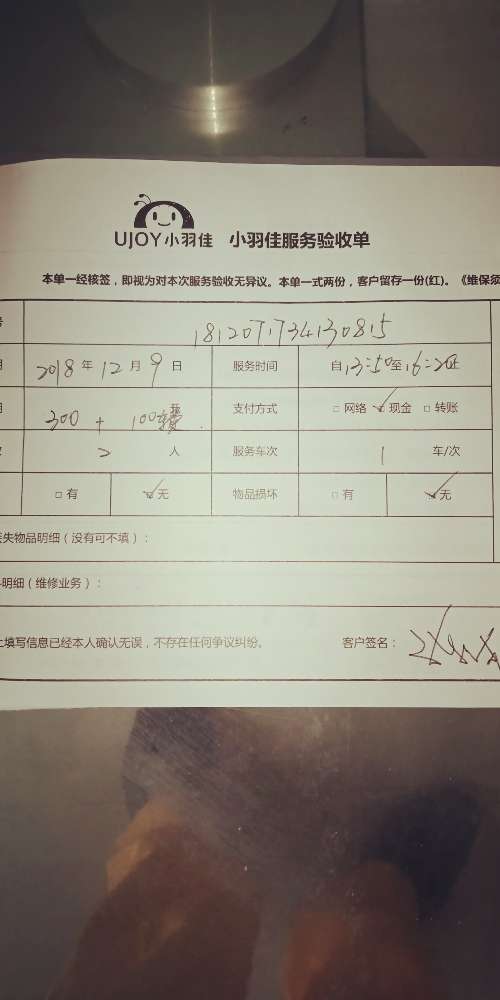 UJOY小羽佳 小羽佳服务验收单
本单一经核签，即视为对本次服务验收无异议。本单一式两份，客户留存一份(红)。《维保须
号 1812071734130815
期 2018年12月9日 服务时间 自13:50至16:20止
300 + 100 支付方式 □网络 ☑现金 □转账
2人 服务车次 1车/次
□有 ☑无 物品损坏 □有 ☑无
失物品明细（没有可不填）：
明细（维修业务）：
上填写信息已经本人确认无误，不存在任何争议纠纷。 客户签名：